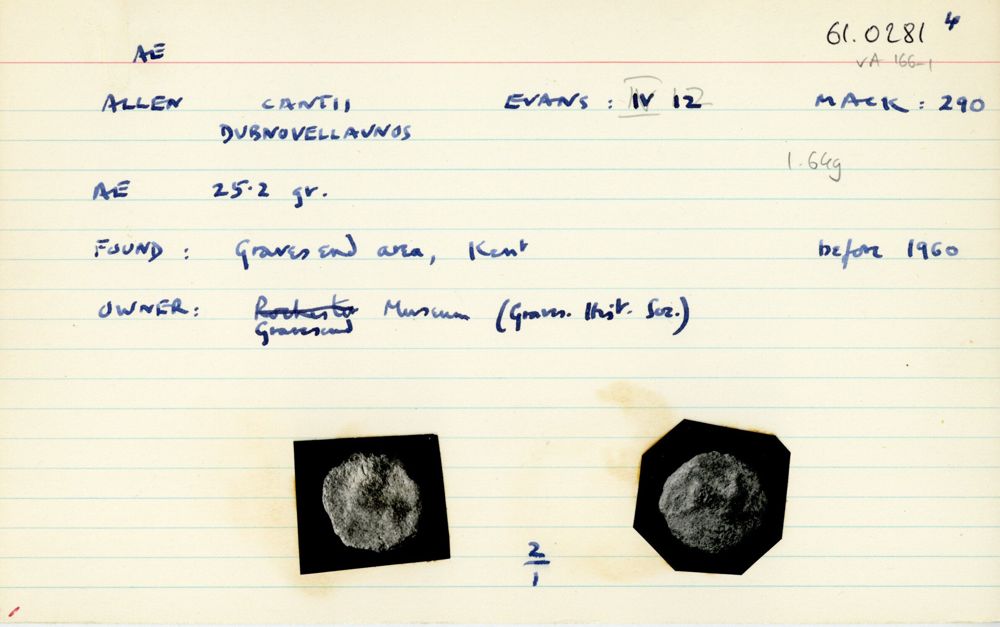 61.0281 4
AE
VA 166-1
ALLEN CANTII EVANS : IV 12 MACK : 290
DUBNOVELLAUNOS
1.64g
AE 25.2 gr.
FOUND : Gravesend area, Kent before 1960
OWNER: Rochester Museum (Graves. Hist. Soc.)
Gravesend
2
1